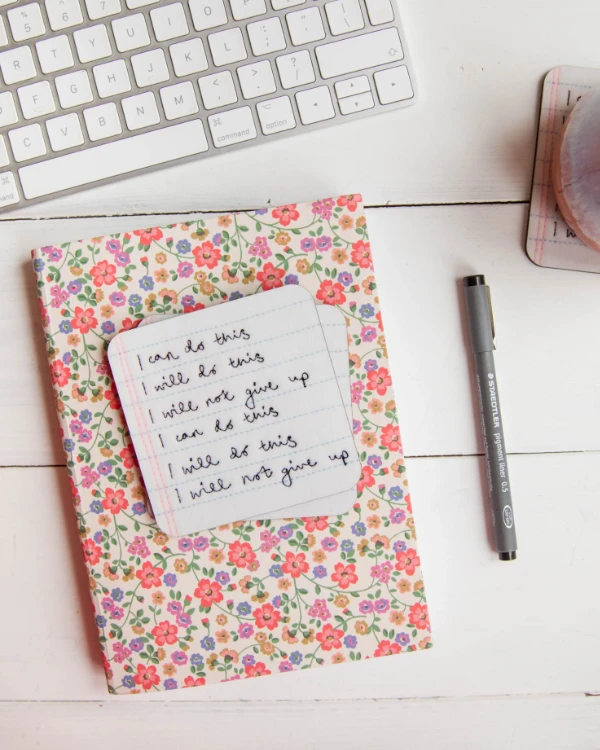 % 5
^ 6
R T Y U I O P { [ } ]
F G H J K L : ; " '
C V B N M < , > . ? /
⌘ command
⌥ option
⌘
I can do this
I will do this
I will not give up
I can do this
I will do this
I will not give up
STAEDTLER pigment liner 0.5